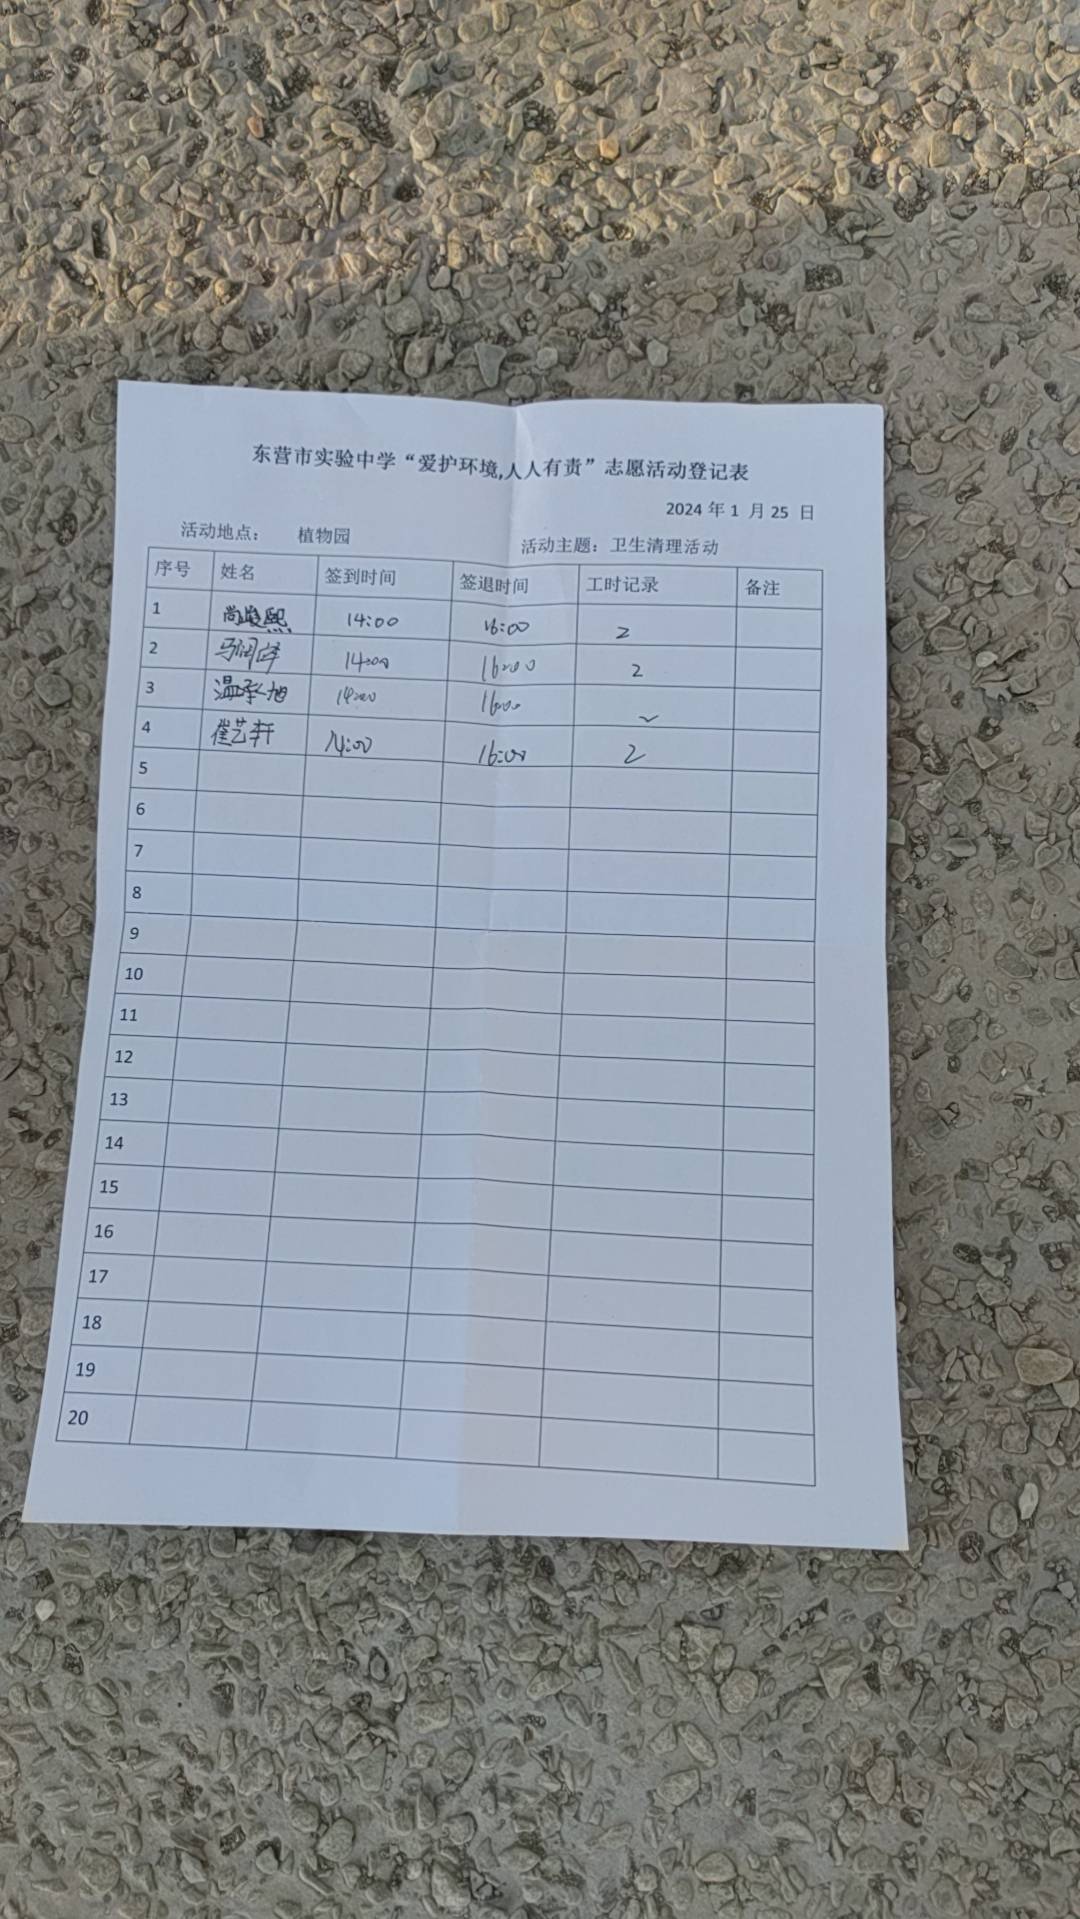 东营市实验中学“爱护环境,人人有责”志愿活动登记表
2024 年 1 月 25 日
活动地点： 植物园 活动主题：卫生清理活动
序号 姓名 签到时间 签退时间 工时记录 备注
1 14:00 16:00 2
2 14:00 16:00 2
3 温承旭 14:00 16:00 2
4 崔艺轩 14:00 16:00 2
5
6
7
8
9
10
11
12
13
14
15
16
17
18
19
20